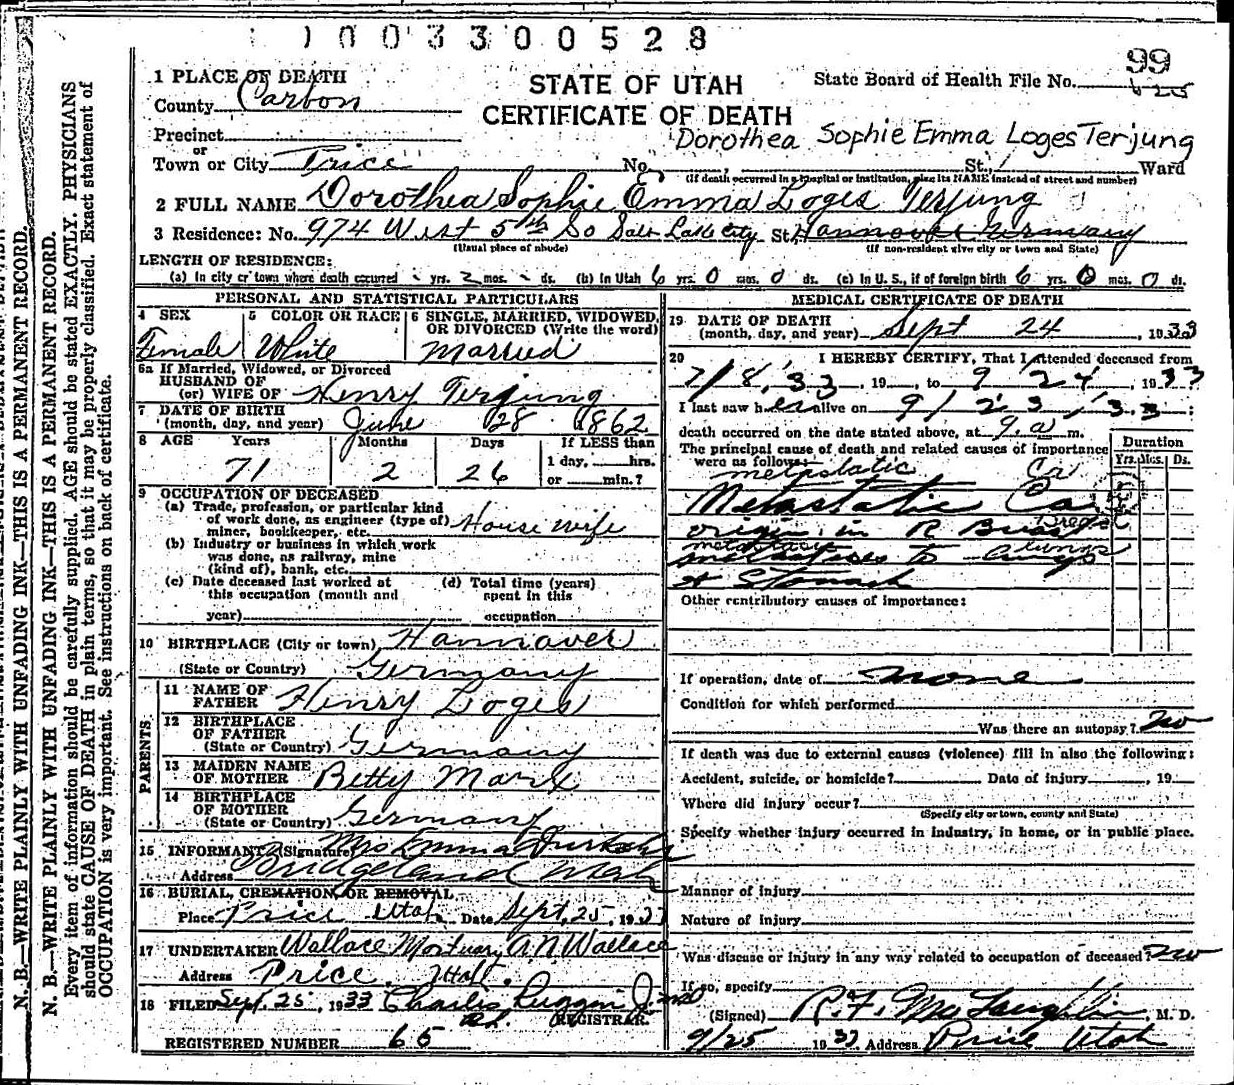 1003300528
99
1 PLACE OF DEATH
STATE OF UTAH
State Board of Health File No.
County Carbon
CERTIFICATE OF DEATH
Precinct
Dorothea Sophie Emma Loges Terjung
or
Town or City Price No. St., Ward
(If death occurred in a hospital or institution, give its NAME instead of street and number)
2 FULL NAME Dorothea Sophie Emma Loges Terjung
3 Residence: No. 974 West 5th So Salt Lake City St. Hannover Germany
(Usual place of abode) (If non-resident give city or town and State)
LENGTH OF RESIDENCE:
(a) In city or town where death occurred - yrs. 2 mos. - ds. (b) In Utah 6 yrs. 0 mos. 0 ds. (c) In U. S., if of foreign birth 6 yrs. 0 mos. 0 ds.
PERSONAL AND STATISTICAL PARTICULARS
4 SEX 5 COLOR OR RACE 6 SINGLE, MARRIED, WIDOWED, OR DIVORCED (Write the word)
Female White Married
6a If Married, Widowed, or Divorced
HUSBAND OF
(or) WIFE OF Henry Terjung
7 DATE OF BIRTH
(month, day, and year) June 28 1862
8 AGE Years Months Days If LESS than
71 2 26 1 day, hrs.
or min.?
9 OCCUPATION OF DECEASED
(a) Trade, profession, or particular kind
of work done, as engineer (type of) House wife
miner, bookkeeper, etc.
(b) Industry or business in which work
was done, as railway, mine
(kind of), bank, etc.
(c) Date deceased last worked at (d) Total time (years)
this occupation (month and spent in this
year) occupation
10 BIRTHPLACE (City or town) Hannover
(State or Country) Germany
PARENTS
11 NAME OF
FATHER Henry Loges
12 BIRTHPLACE
OF FATHER
(State or Country) Germany
13 MAIDEN NAME
OF MOTHER Betty Marx
14 BIRTHPLACE
OF MOTHER
(State or Country) Germany
15 INFORMANT (Signature) Mrs Emma
Address Bridgeland Utah
16 BURIAL, CREMATION, OR REMOVAL
Place Price Utah Date Sept. 25, 1933
17 UNDERTAKER Wallace Mortuary A N Wallace
Address Price Utah.
18 FILED Sept. 25, 1933 Charles Ruggeri Jr. md
REGISTRAR
REGISTERED NUMBER 65
MEDICAL CERTIFICATE OF DEATH
19 DATE OF DEATH
(month, day, and year) Sept 24 1933
20 I HEREBY CERTIFY, That I attended deceased from
7/8, 33, 19, to 9 24, 1933
I last saw her alive on 9/23/33;
death occurred on the date stated above, at 9 a m.
The principal cause of death and related causes of importance
were as follows: Duration
Yrs. Mos. Ds.
metastatic Ca
Metastatic Ca
origin in R Breast
Breast
metastases to lungs
metastases to Lungs
& Stomach
Other contributory causes of importance:
If operation, date of none
Condition for which performed
Was there an autopsy? no
If death was due to external causes (violence) fill in also the following:
Accident, suicide, or homicide? Date of injury, 19
Where did injury occur?
(Specify city or town, county and State)
Specify whether injury occurred in industry, in home, or in public place.
Manner of injury
Nature of injury
Was disease or injury in any way related to occupation of deceased? no
If so, specify
(Signed) R.F. McLaughlin, M. D.
9/25 1933 Address Price Utah
N. B.—WRITE PLAINLY WITH UNFADING INK—THIS IS A PERMANENT RECORD.
N. B.—WRITE PLAINLY WITH UNFADING INK—THIS IS A PERMANENT RECORD.
Every item of information should be carefully supplied. AGE should be stated EXACTLY. PHYSICIANS
should state CAUSE OF DEATH in plain terms, so that it may be properly classified. Exact statement of
OCCUPATION is very important. See instructions on back of certificate.